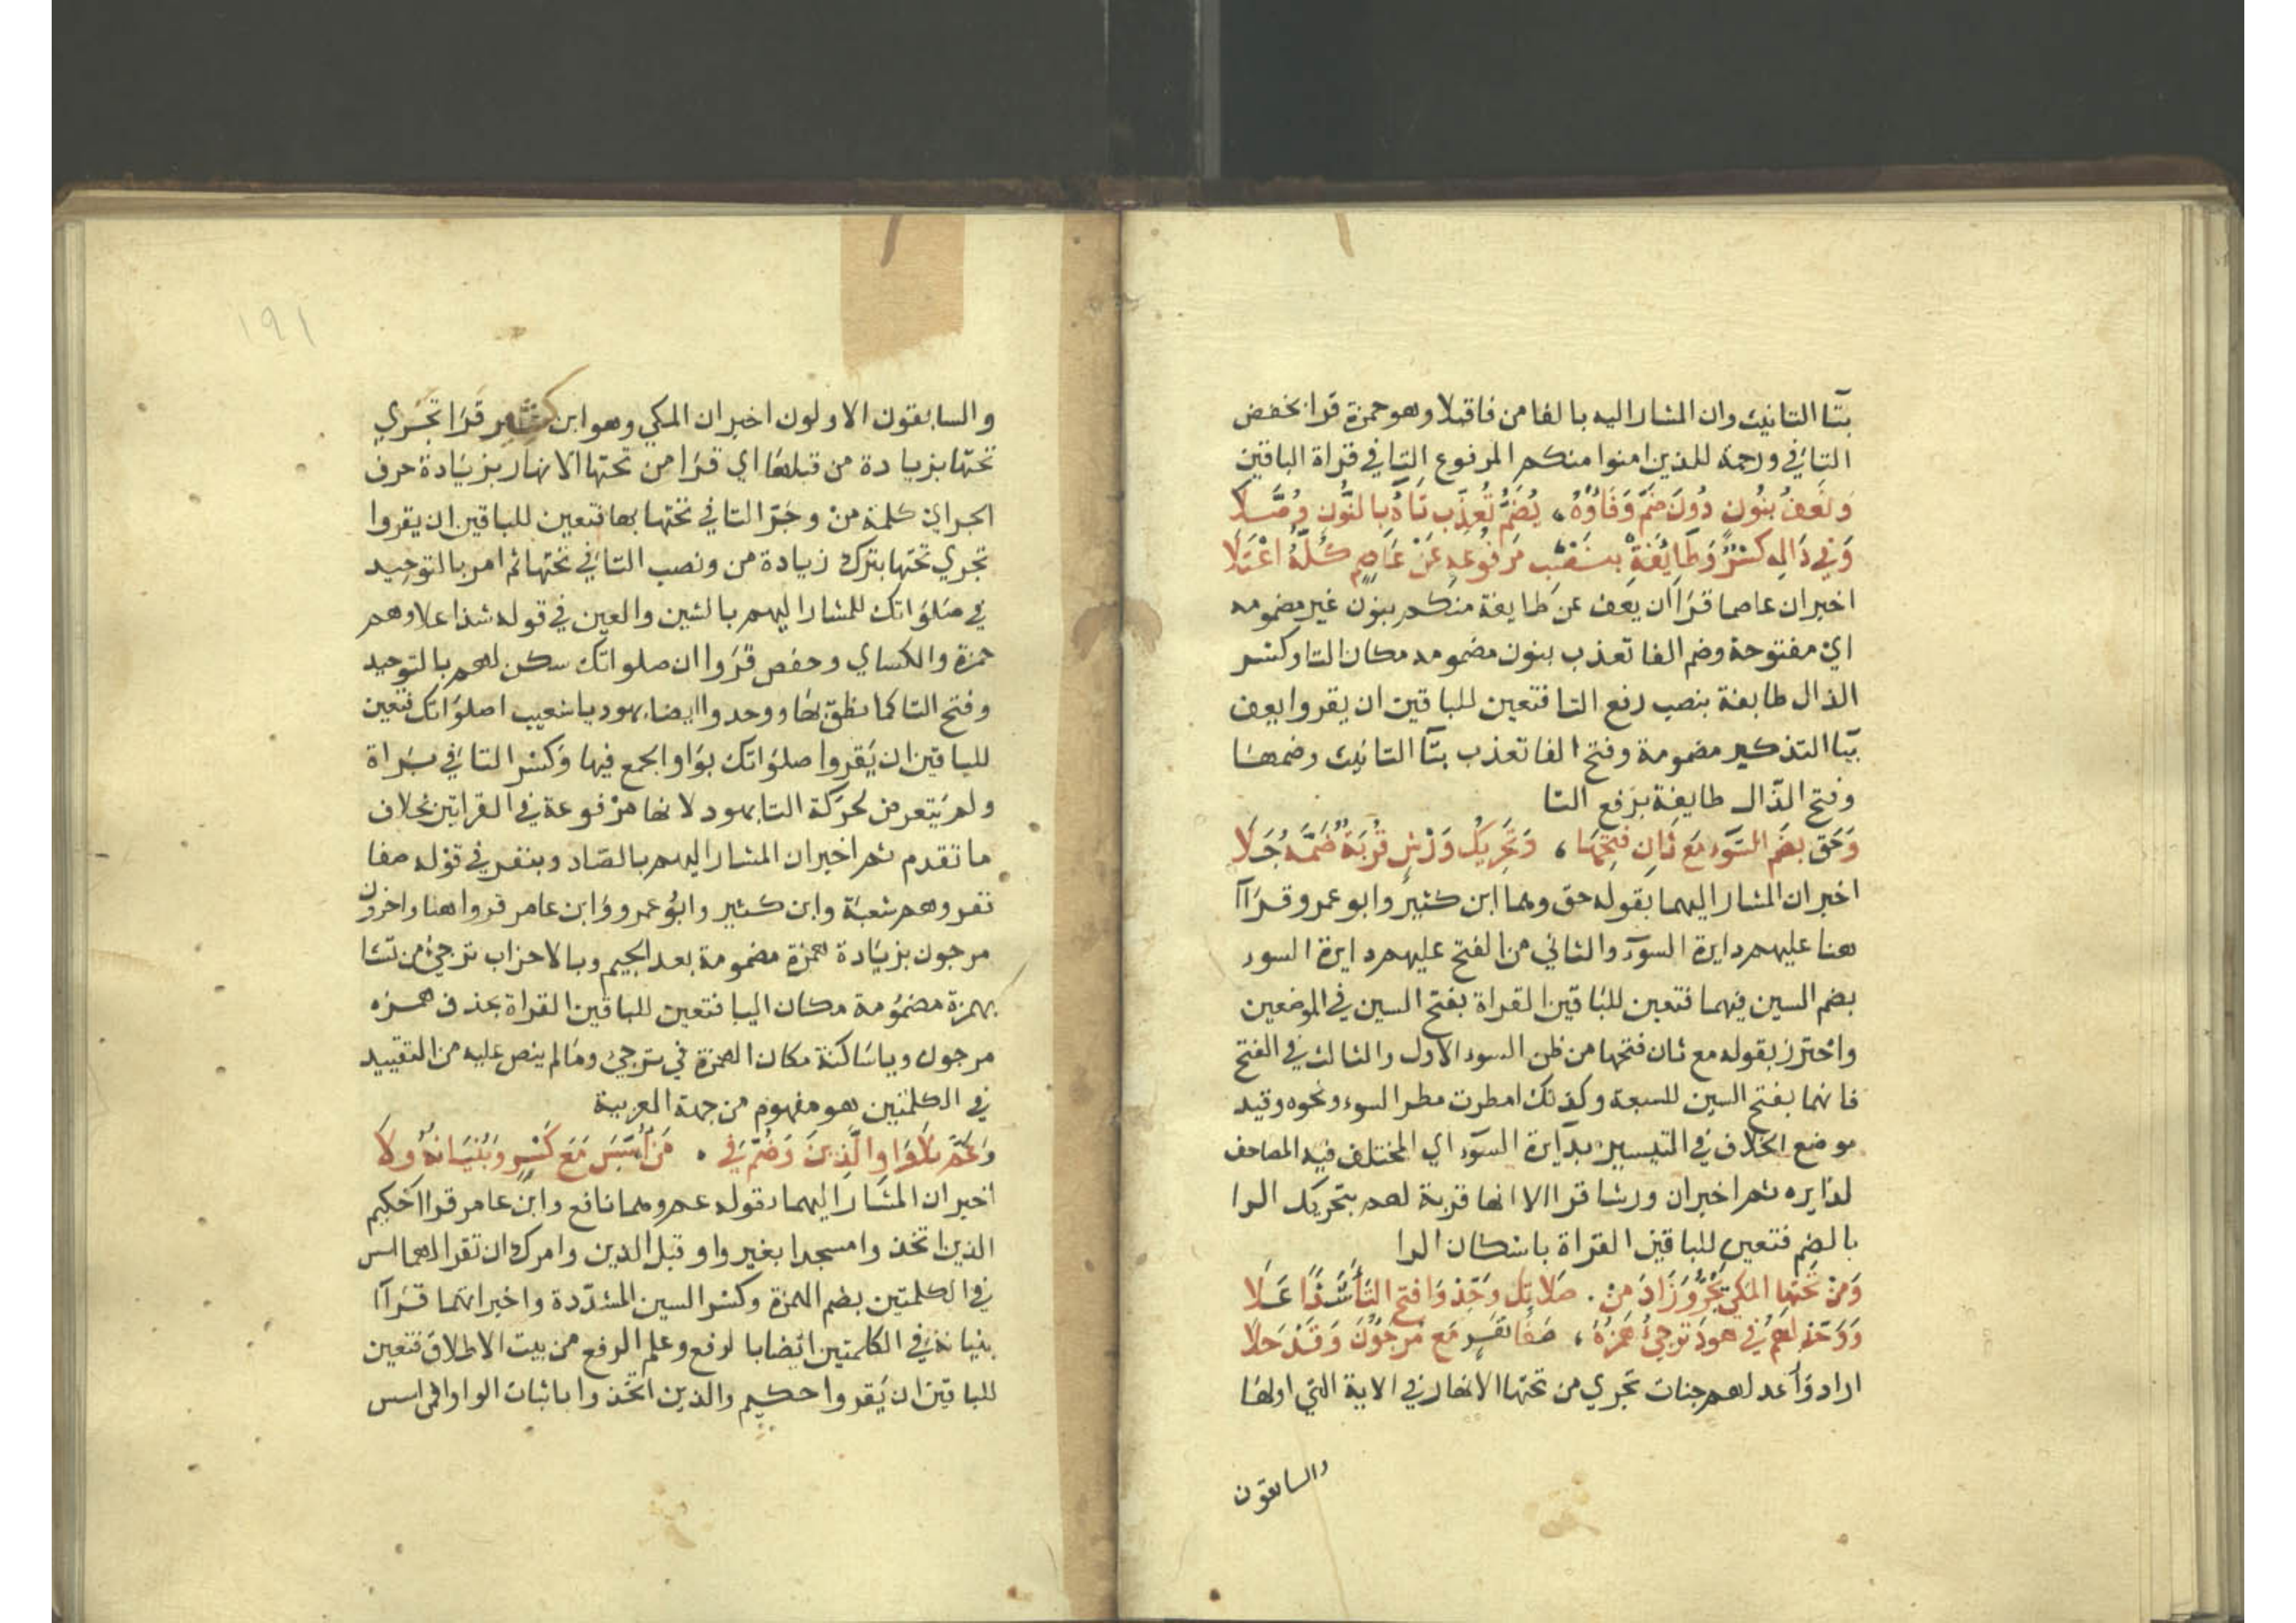 بتآ التانيث وان المشار اليه بالفا من فاقبلا وهو حمزة قرا بخفض
التا في ورحمة للذين امنوا منكم المرفوع التا في قراة الباقين
وَنَعْفُ بنُونٍ دُونَ ضَمٍّ وَفَاؤُهُ، يُضَمُّ تُعَذَّبْ تَاهُ بِالنُّونِ وُصِّلَا
وَفِي ذَالِهِ كَسْرٌ وَطَايِفَةٌ بنَصْبِ مَرْفُوعِهِ عَنْ عَاصِمٍ كُلُّهُ اعْتَلَا
اخبر ان عاصما قرَا ان يعف عن طايفة منكم بنون غير مضمومه
اي مفتوحة وضم الفا تعذب بنون مضمومه مكان التا وكسْر
الذال طايفة بنصب رفع التا فتعين للباقين ان يقروا يعف
بيّا التذكير مضمومة وفتح الفا تعذب بتآ التانيث وضمها
وفتح الذّال طايفة برَفع التا
وَحَق بضَمِّ السَّوءِ مَعْ ثَانِ فَتْحِهَا، وَتَحْرِيكُ وَرْشٍ قُرْبَةٌ ضَمُّهُ جَلَا
اخبر ان المشار اليهما بقوله حق وهما ابن كثير وابو عمرو قرَاآ
هنا عليهم دايرة السوٓء والثاني من الفتح عليهم دايرة السوء
بضم السين فيهما فتعين للبَاقين القراة بفتح السين في الموضعين
واحترز بقوله مع ثان فتحها من ظن السوء الاول والثالث في الفتح
فانهما بفتح السين للسبعة وكذلك امطرت مطر السوء ونحوه وقيد
موضع الخلاف في التيسير بدايرة السوٓء اي المختلف فيه المصاحف
لدايره ثم اخبر ان ورشا قرا الا انها قربة لهم بتحريك الرا
بالضم فتعين للباقين القراة باسْكان الرا
وَمِنْ تَحْتِهَا المَكِّي يَجُرُّ وَزَادَ مِنْ . صَلَاتَكَ وَحِّدْ وَافتَحِ التَا شَذًا عَلَا
وَوَحِّدْ لَهُمْ فِي هودَ تُرْجِئُ هَمْزُهُ، صَفَا نَفَرٍ مَعْ مُرْجَؤُنَ وَقَدْ حَلَا
اراد وَأعد لهم جنات تجري من تحتها الانهار في الاية التي اولها
والسابقون
١٩١
والسابقون الاولون اخبر ان المكي وهو ابن كثير قَرَا تجَري
تحتها بزيادة من قبلها اي قرَا من تحتها الانهار بزيَادة حرف
الجر اي كلمة من وجَرّ التا في تحتها بها فتعين للباقين ان يقروا
تجري تحتها بترك زيادة من ونصب التا في تحتها ثم امر بالتوحيد
في صَلوَاتك للمشار اليهم بالشين والعين في قوله شذا علا وهم
حمزة والكساي وحفص قرَوا ان صلواتك سكن لهم بالتوحيد
وفتح التا كما نطق بها ووحدوا ايضا بهود يا شعيب اصلوَاتك فتعين
للباقين ان يَقروا صلوَاتك بوَاو الجمع فيها وَكسْر التا في بَراة
ولم يتعرض لحرَكة التا بهود لانها مرْفوعة في القراتين بخلاف
ما تقدم ثم اخبر ان المشار اليهم بالصّاد وبنفر في قوْله صفا
نفر وهم شعبَة وابن كثير وابوُ عمرو وَابن عامر قروا هنا واخرون
مرجون بزيَادة همزة مضمومة بعد الجيم وبالاحزاب ترجئ من تشا
بهمزة مضمُومة مكان اليا فتعين للباقين القراة بحذف همزه
مرجون وياسَاكنة مكان الهمزة في ترجئ ومَا لم ينص عليه من التقييد
في الكلمتين هو مفهوم من جهة العربية
وَعَمَّ بلَا وَاوٍ الَّذِينَ وَضُمَّ فِي . مَنْ اسِّسَ مَعَ كَسْرٍ وَبُنيَانُهُ ولَا
اخبر ان المشَار اليهما بقوله عم وهما نافع وابن عامر قراا حكيم
الذين اتخذوا مسجدا بغير واو قبل الذين وامرك ان تقرا لهما اسس
في الكلمتين بضم الهمزة وكسْر السين المشدّدة واخبر انهما قرَاآ
بنيانه في الكلمتين ايضا بالرفع وعلم الرفع من بيت الاطلاق فتعين
للباقين ان يَقروا حكيم والذين اتخَذوا باثبات الواو افمن اسس